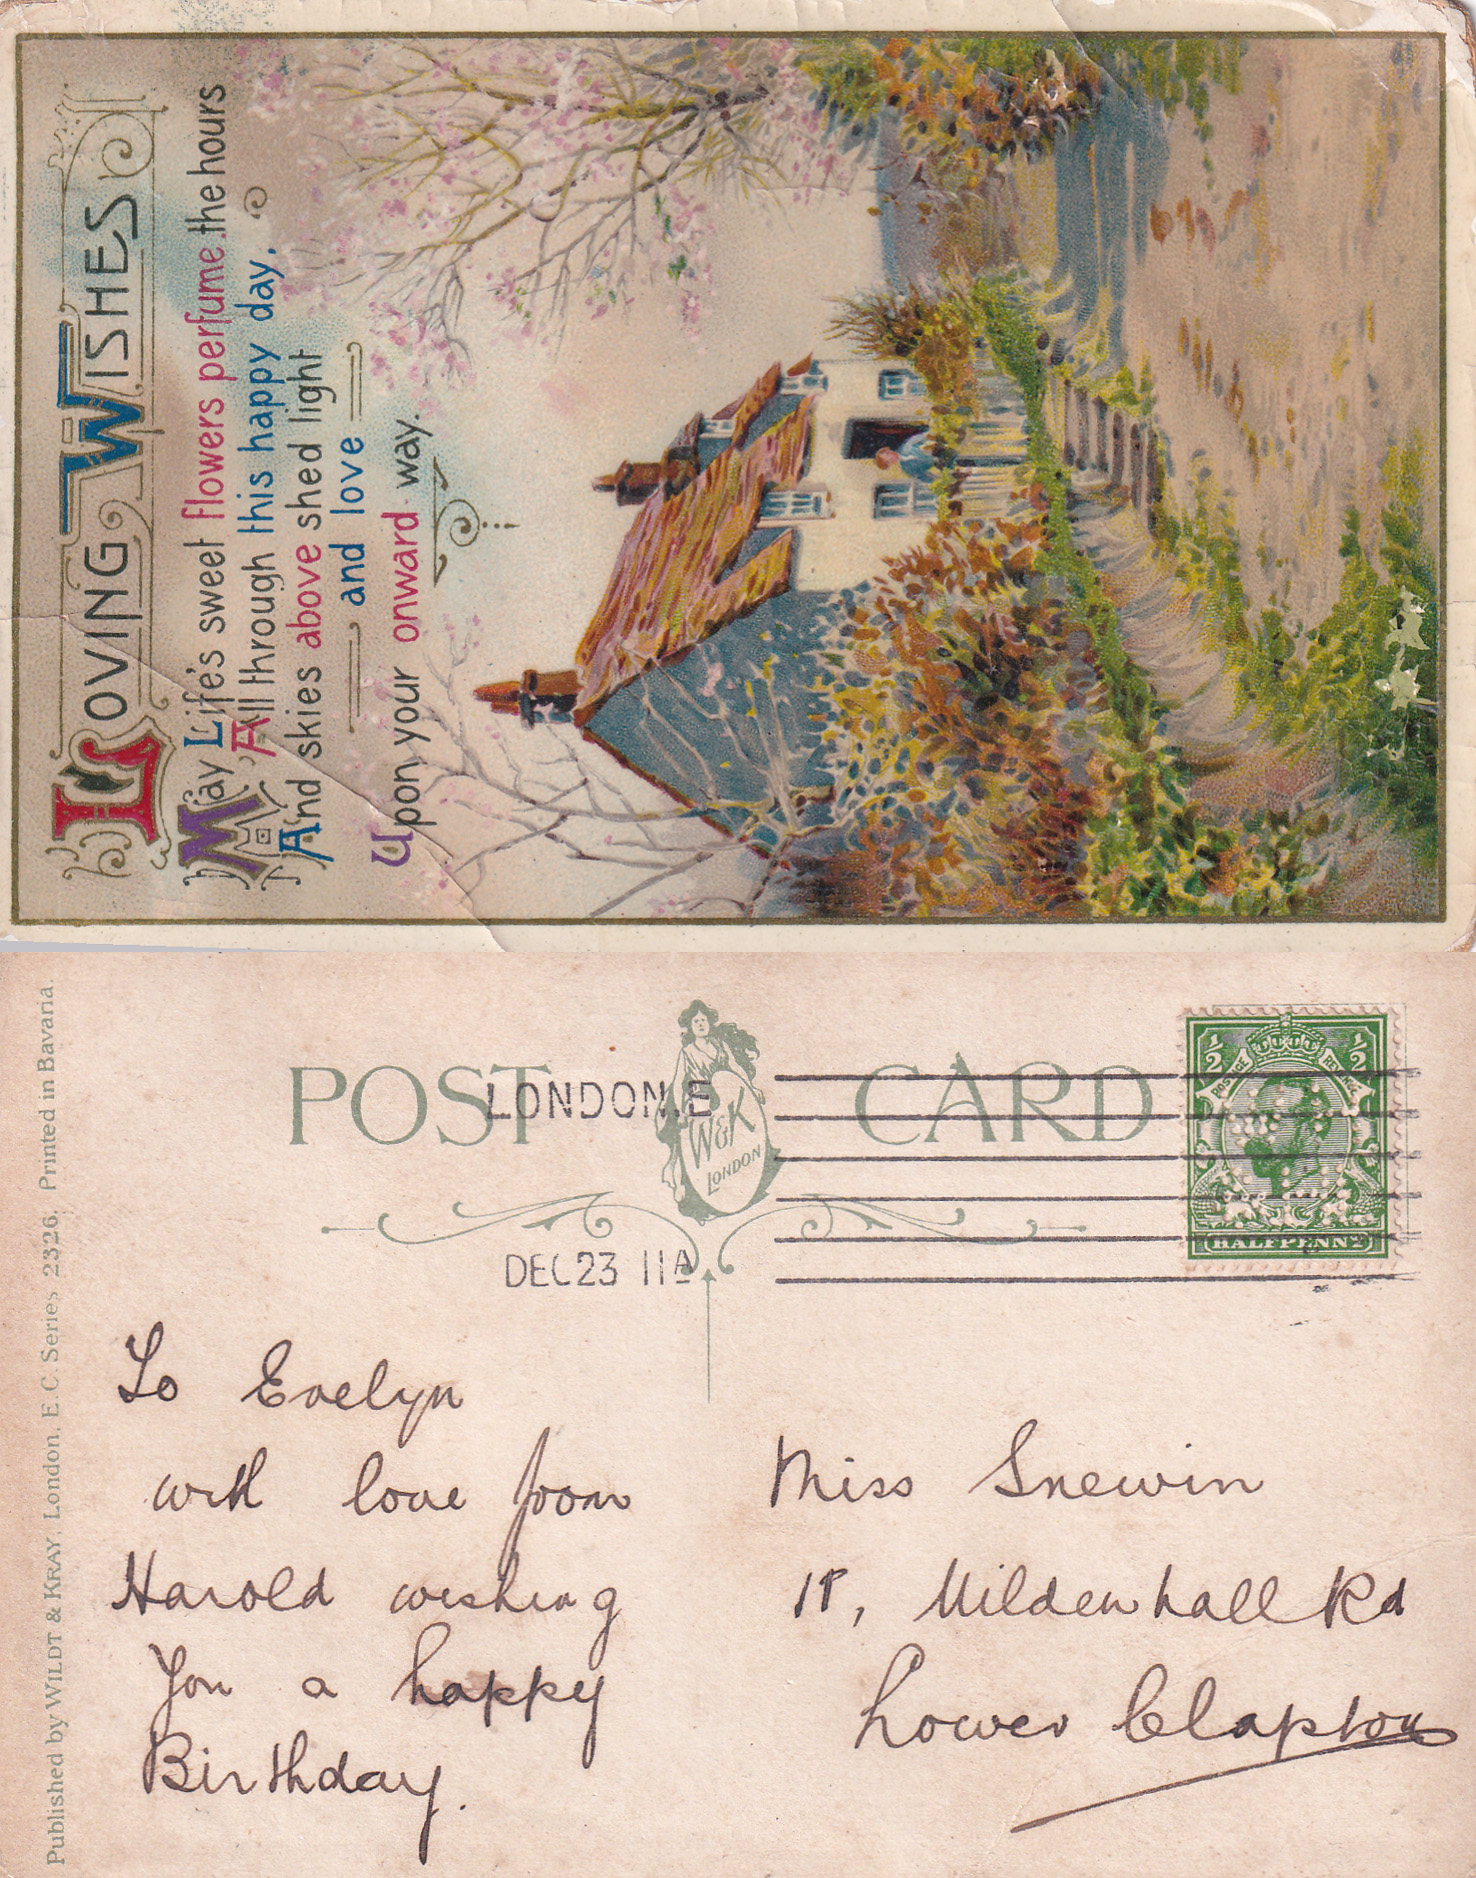 LOVING WISHES
May Life's sweet flowers perfume the hours
All through this happy day,
And skies above shed light
and love
Upon your onward way.
POST CARD
W&K
LONDON
LONDON.E
DEC 23 11A
1/2 1/2
POSTAGE REVENUE
HALFPENNY
Published by WILDT & KRAY, London, E.C. Series 2326. Printed in Bavaria.
To Evelyn
with love from
Harold wishing
You a happy
Birthday.
Miss Snewin
Mildenhall Rd
Lower Clapton